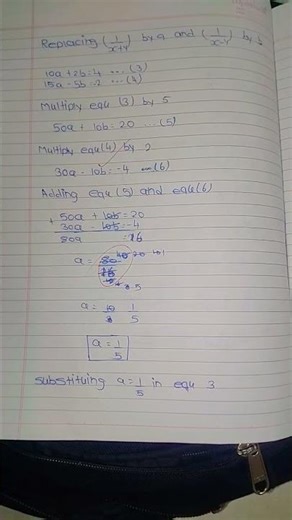 Replacing (1/x+y) by a and (1/x-y) by b
10a + 2b = 4 ... (3)
15a - 5b = -2 ... (4)
Multiply equ (3) by 5
50a + 10b = 20 ... (5)
Multiply equ(4) by 2
30a - 10b = -4 ... (6)
Adding equ (5) and equ(6)
+ 50a + 10b = 20
30a - 10b = -4
80a = 16
a =
5
a = 1/5
a = 1/5
substituing a = 1/5 in equ 3